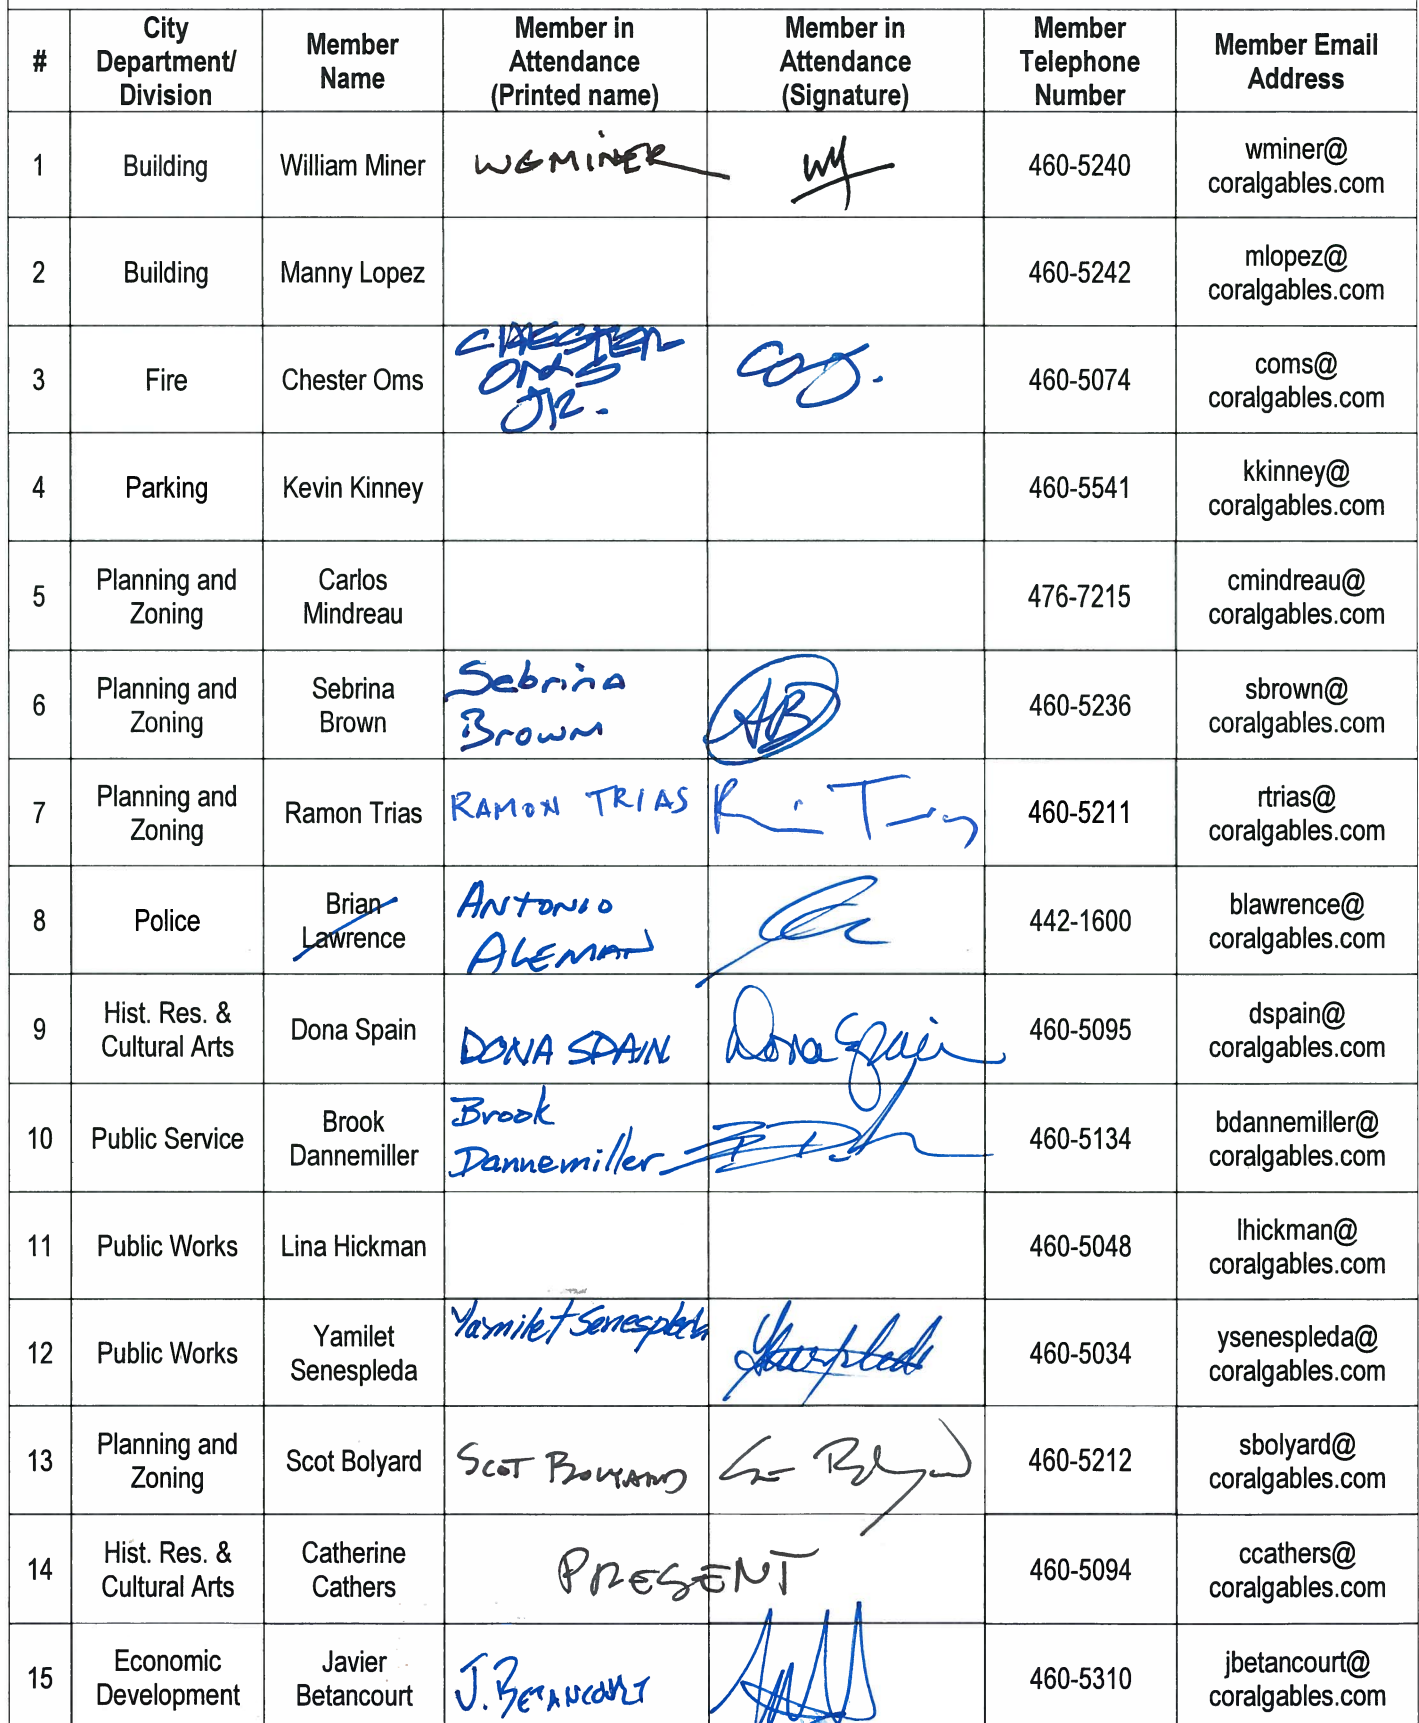 #
City Department/ Division
Member Name
Member in Attendance (Printed name)
Member in Attendance (Signature)
Member Telephone Number
Member Email Address
1
Building
William Miner
WGMINER
460-5240
wminer@
coralgables.com
2
Building
Manny Lopez
460-5242
mlopez@
coralgables.com
3
Fire
Chester Oms
CHESTER
OMS
JR.
460-5074
coms@
coralgables.com
4
Parking
Kevin Kinney
460-5541
kkinney@
coralgables.com
5
Planning and
Zoning
Carlos
Mindreau
476-7215
cmindreau@
coralgables.com
6
Planning and
Zoning
Sebrina
Brown
Sebrina
Brown
460-5236
sbrown@
coralgables.com
7
Planning and
Zoning
Ramon Trias
RAMON TRIAS
460-5211
rtrias@
coralgables.com
8
Police
Brian
Lawrence
ANTONIO
ALEMAN
442-1600
blawrence@
coralgables.com
9
Hist. Res. &
Cultural Arts
Dona Spain
DONA SPAIN
Dona Spain
460-5095
dspain@
coralgables.com
10
Public Service
Brook
Dannemiller
Brook
Dannemiller
460-5134
bdannemiller@
coralgables.com
11
Public Works
Lina Hickman
460-5048
lhickman@
coralgables.com
12
Public Works
Yamilet
Senespleda
Yamilet Senespleda
460-5034
ysenespleda@
coralgables.com
13
Planning and
Zoning
Scot Bolyard
SCOT BOLYARD
460-5212
sbolyard@
coralgables.com
14
Hist. Res. &
Cultural Arts
Catherine
Cathers
PRESENT
460-5094
ccathers@
coralgables.com
15
Economic
Development
Javier
Betancourt
J. BETANCOURT
460-5310
jbetancourt@
coralgables.com